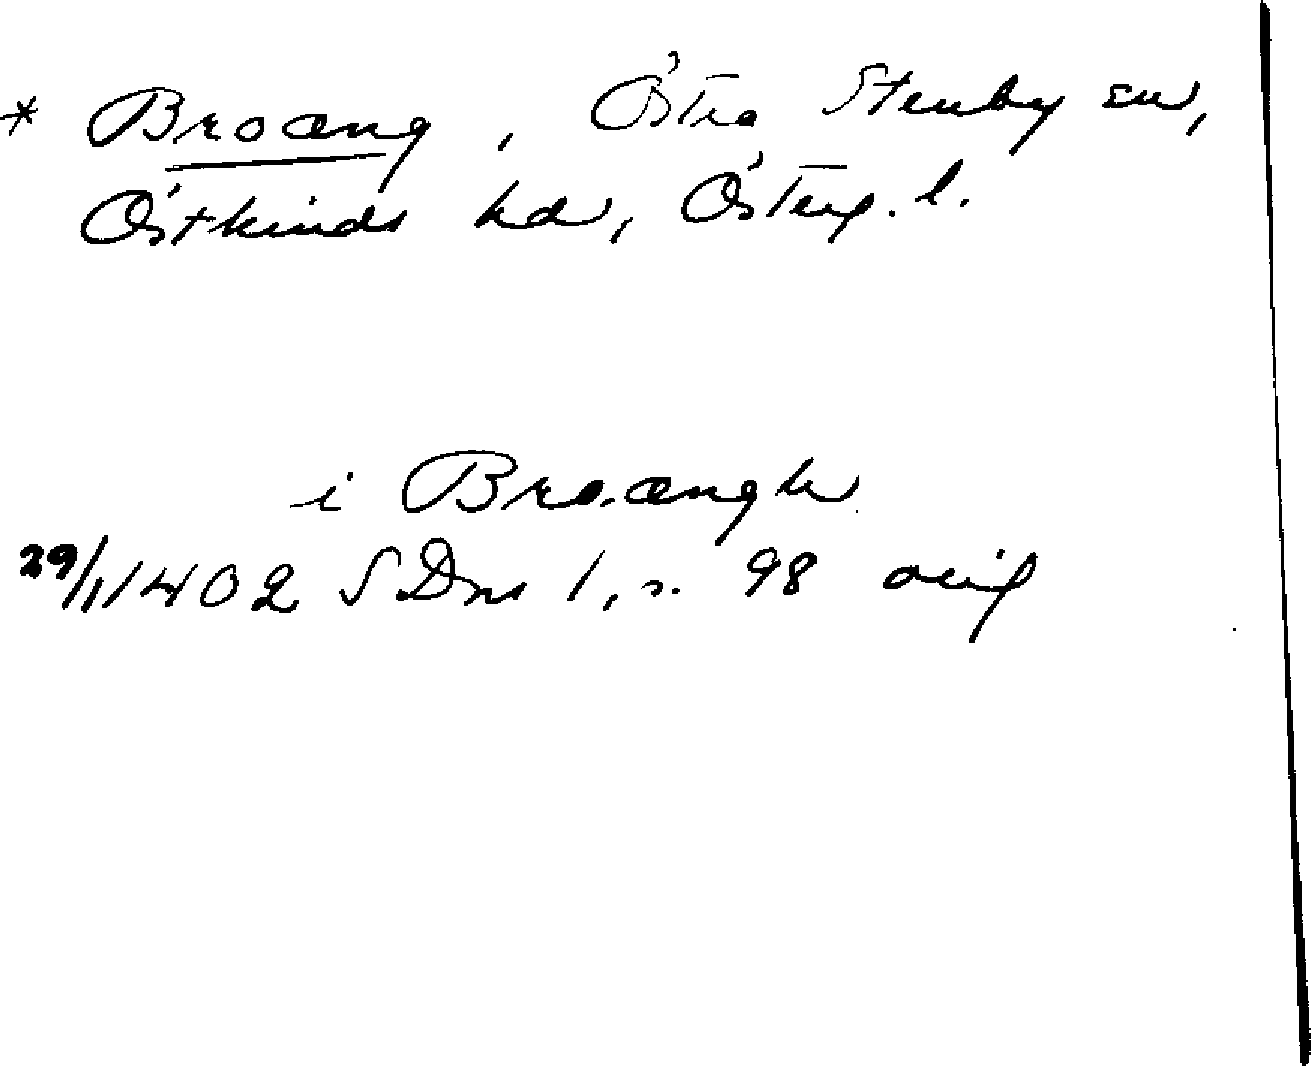 * Broæng, Östra Stenby sn,
Östkinds hd, Österg. l.
i Broængh
29/11 1402 SDns 1, s. 98 orig